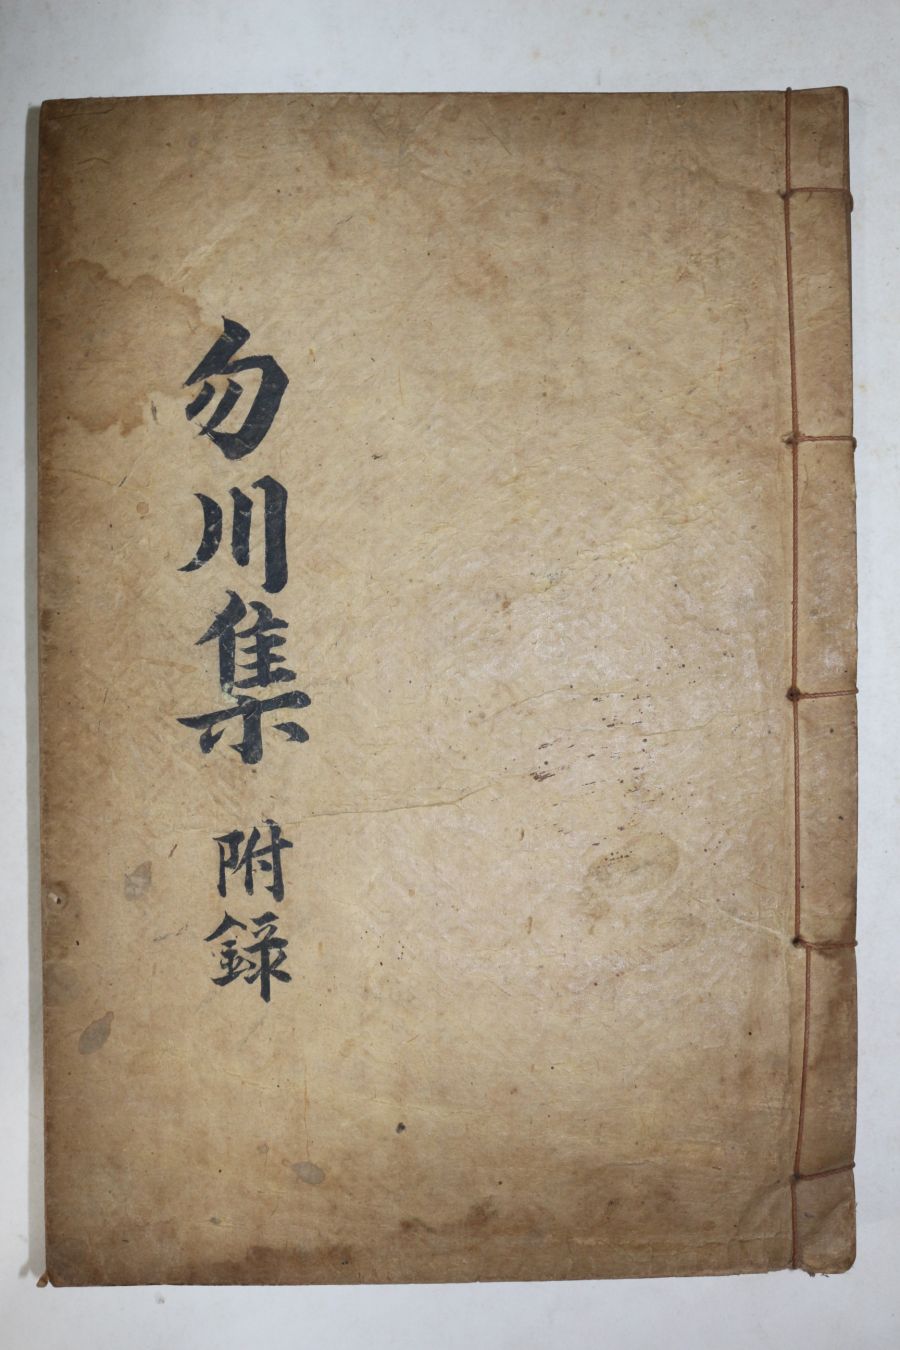 勿川集 附錄